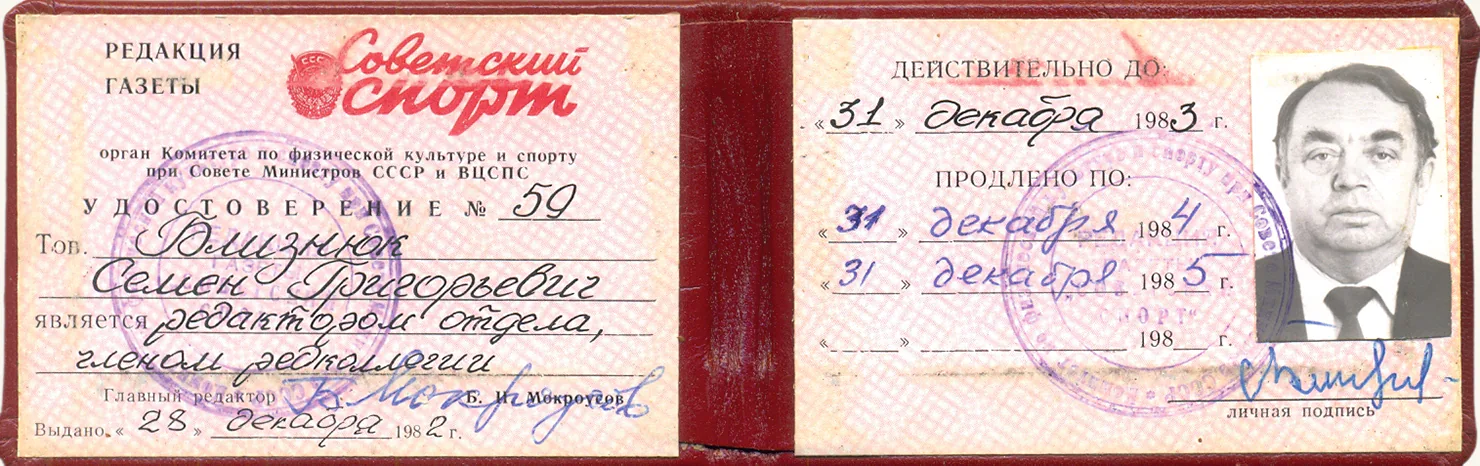 РЕДАКЦИЯ
ГАЗЕТЫ
Советский
спорт
орган Комитета по физической культуре и спорту
при Совете Министров СССР и ВЦСПС
УДОСТОВЕРЕНИЕ № 59
Тов. Близнюк
Семен Григорьевич
является редактором отдела,
членом редколлегии
Главный редактор Б. И. Мокроусов
Выдано „ 28 " декабря 1982 г.
ДЕЙСТВИТЕЛЬНО ДО:
„ 31 " декабря 1983 г.
ПРОДЛЕНО ПО:
„ 31 " декабря 1984 г.
„ 31 " декабря 1985 г.
„ " 198 г.
личная подпись